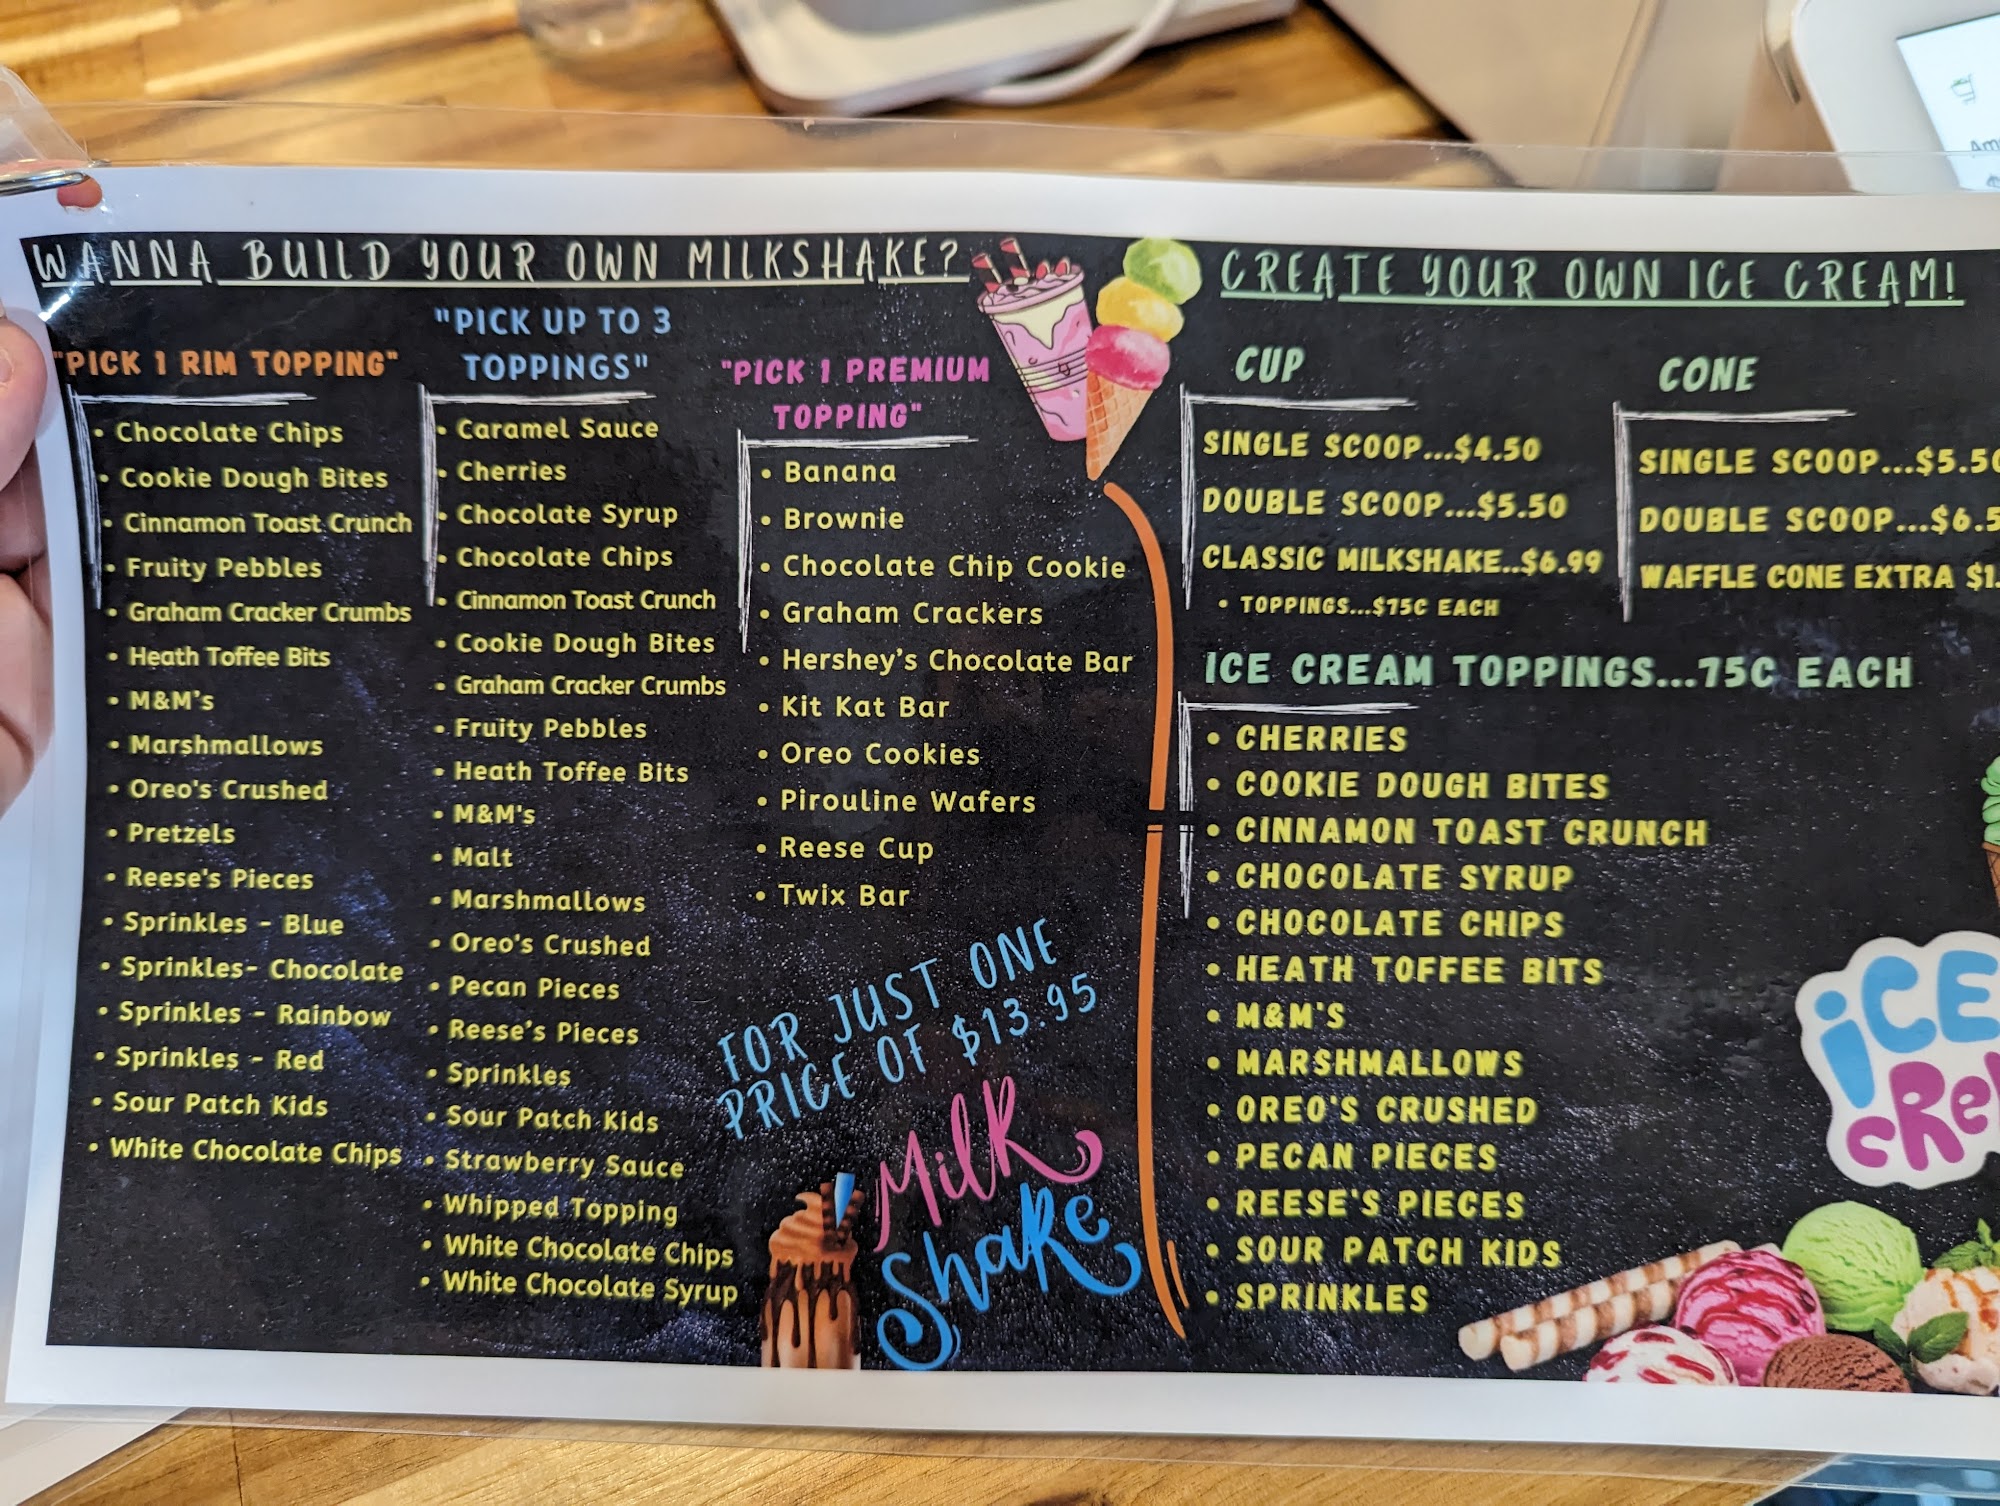 WANNA BUILD YOUR OWN MILKSHAKE?
"PICK 1 RIM TOPPING"
• Chocolate Chips
• Cookie Dough Bites
• Cinnamon Toast Crunch
• Fruity Pebbles
• Graham Cracker Crumbs
• Heath Toffee Bits
• M&M's
• Marshmallows
• Oreo's Crushed
• Pretzels
• Reese's Pieces
• Sprinkles - Blue
• Sprinkles- Chocolate
• Sprinkles - Rainbow
• Sprinkles - Red
• Sour Patch Kids
• White Chocolate Chips
"PICK UP TO 3
TOPPINGS"
• Caramel Sauce
• Cherries
• Chocolate Syrup
• Chocolate Chips
• Cinnamon Toast Crunch
• Cookie Dough Bites
• Graham Cracker Crumbs
• Fruity Pebbles
• Heath Toffee Bits
• M&M's
• Malt
• Marshmallows
• Oreo's Crushed
• Pecan Pieces
• Reese's Pieces
• Sprinkles
• Sour Patch Kids
• Strawberry Sauce
• Whipped Topping
• White Chocolate Chips
• White Chocolate Syrup
"PICK 1 PREMIUM
TOPPING"
• Banana
• Brownie
• Chocolate Chip Cookie
• Graham Crackers
• Hershey's Chocolate Bar
• Kit Kat Bar
• Oreo Cookies
• Pirouline Wafers
• Reese Cup
• Twix Bar
FOR JUST ONE
PRICE OF $13.95
Milk
Shake
CREATE YOUR OWN ICE CREAM!
CUP
SINGLE SCOOP...$4.50
DOUBLE SCOOP...$5.50
CLASSIC MILKSHAKE..$6.99
• TOPPINGS...$75C EACH
CONE
SINGLE SCOOP...$5.50
DOUBLE SCOOP...$6.5
WAFFLE CONE EXTRA $1.
ICE CREAM TOPPINGS...75C EACH
• CHERRIES
• COOKIE DOUGH BITES
• CINNAMON TOAST CRUNCH
• CHOCOLATE SYRUP
• CHOCOLATE CHIPS
• HEATH TOFFEE BITS
• M&M'S
• MARSHMALLOWS
• OREO'S CRUSHED
• PECAN PIECES
• REESE'S PIECES
• SOUR PATCH KIDS
• SPRINKLES
iCE
cRe